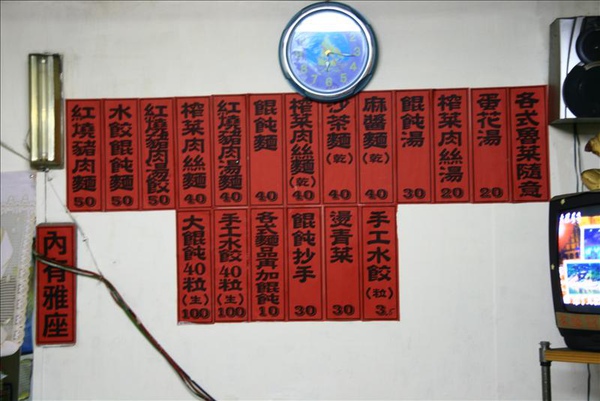 各式魯菜隨意
蛋花湯 20
榨菜肉絲湯 20
餛飩湯 30
麻醬麵(乾) 40
炒茶麵(乾) 40
榨菜肉絲麵(乾) 40
餛飩麵 40
紅燒豬肉湯麵 40
榨菜肉絲麵 40
紅燒豬肉湯餃 50
水餃餛飩麵 50
紅燒豬肉麵 50
手工水餃(粒) 3
燙青菜 30
餛飩抄手 30
各式麵品再加餛飩 10
手工水餃40粒(生) 100
大餛飩40粒(生) 100
內有雅座